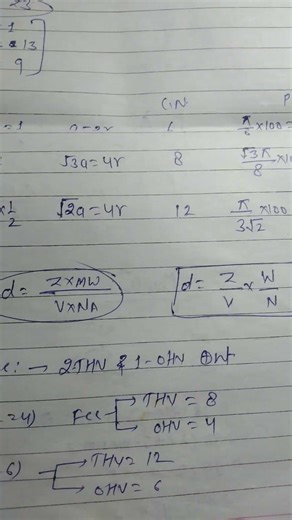 =1
13
9
C.N P
=1 a=2r 6 π/6 ×100=
√3a=4r 8 √3π/8 ×10
×1/2 √2a=4r 12 π/3√2 ×100
d= Z×MW/V×NA d= Z/V × W/N
→ 2THV & 1-OHV
=4) Fcc → THV = 8
→ OHV = 4
6) → THV = 12
→ OHV = 6